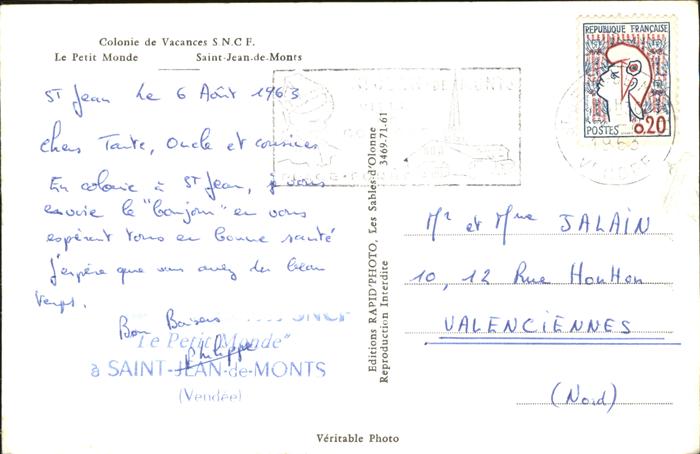 Colonie de Vacances S N C F.
Le Petit Monde Saint-Jean-de-Monts
St Jean Le 6 Août 1963
chers Tante, Oncle et cousines
En colonie à St Jean, je vous
envoie le "bonjour" en vous
espérant tous en bonne santé
j'espère que vous avez du beau
temps.
Bon Baisers
Philippe
SNCF
"Le Petit Monde"
à SAINT-JEAN-de-MONTS
(Vendée)
Editions RAPID'PHOTO, Les Sables-d'Olonne
Reproduction Interdite 3469.71.61
REPUBLIQUE FRANÇAISE
POSTES 0,20
1963
VENDEE
Mr et Mme JALAIN
10, 12 Rue Honhon
VALENCIENNES
(Nord)
Véritable Photo